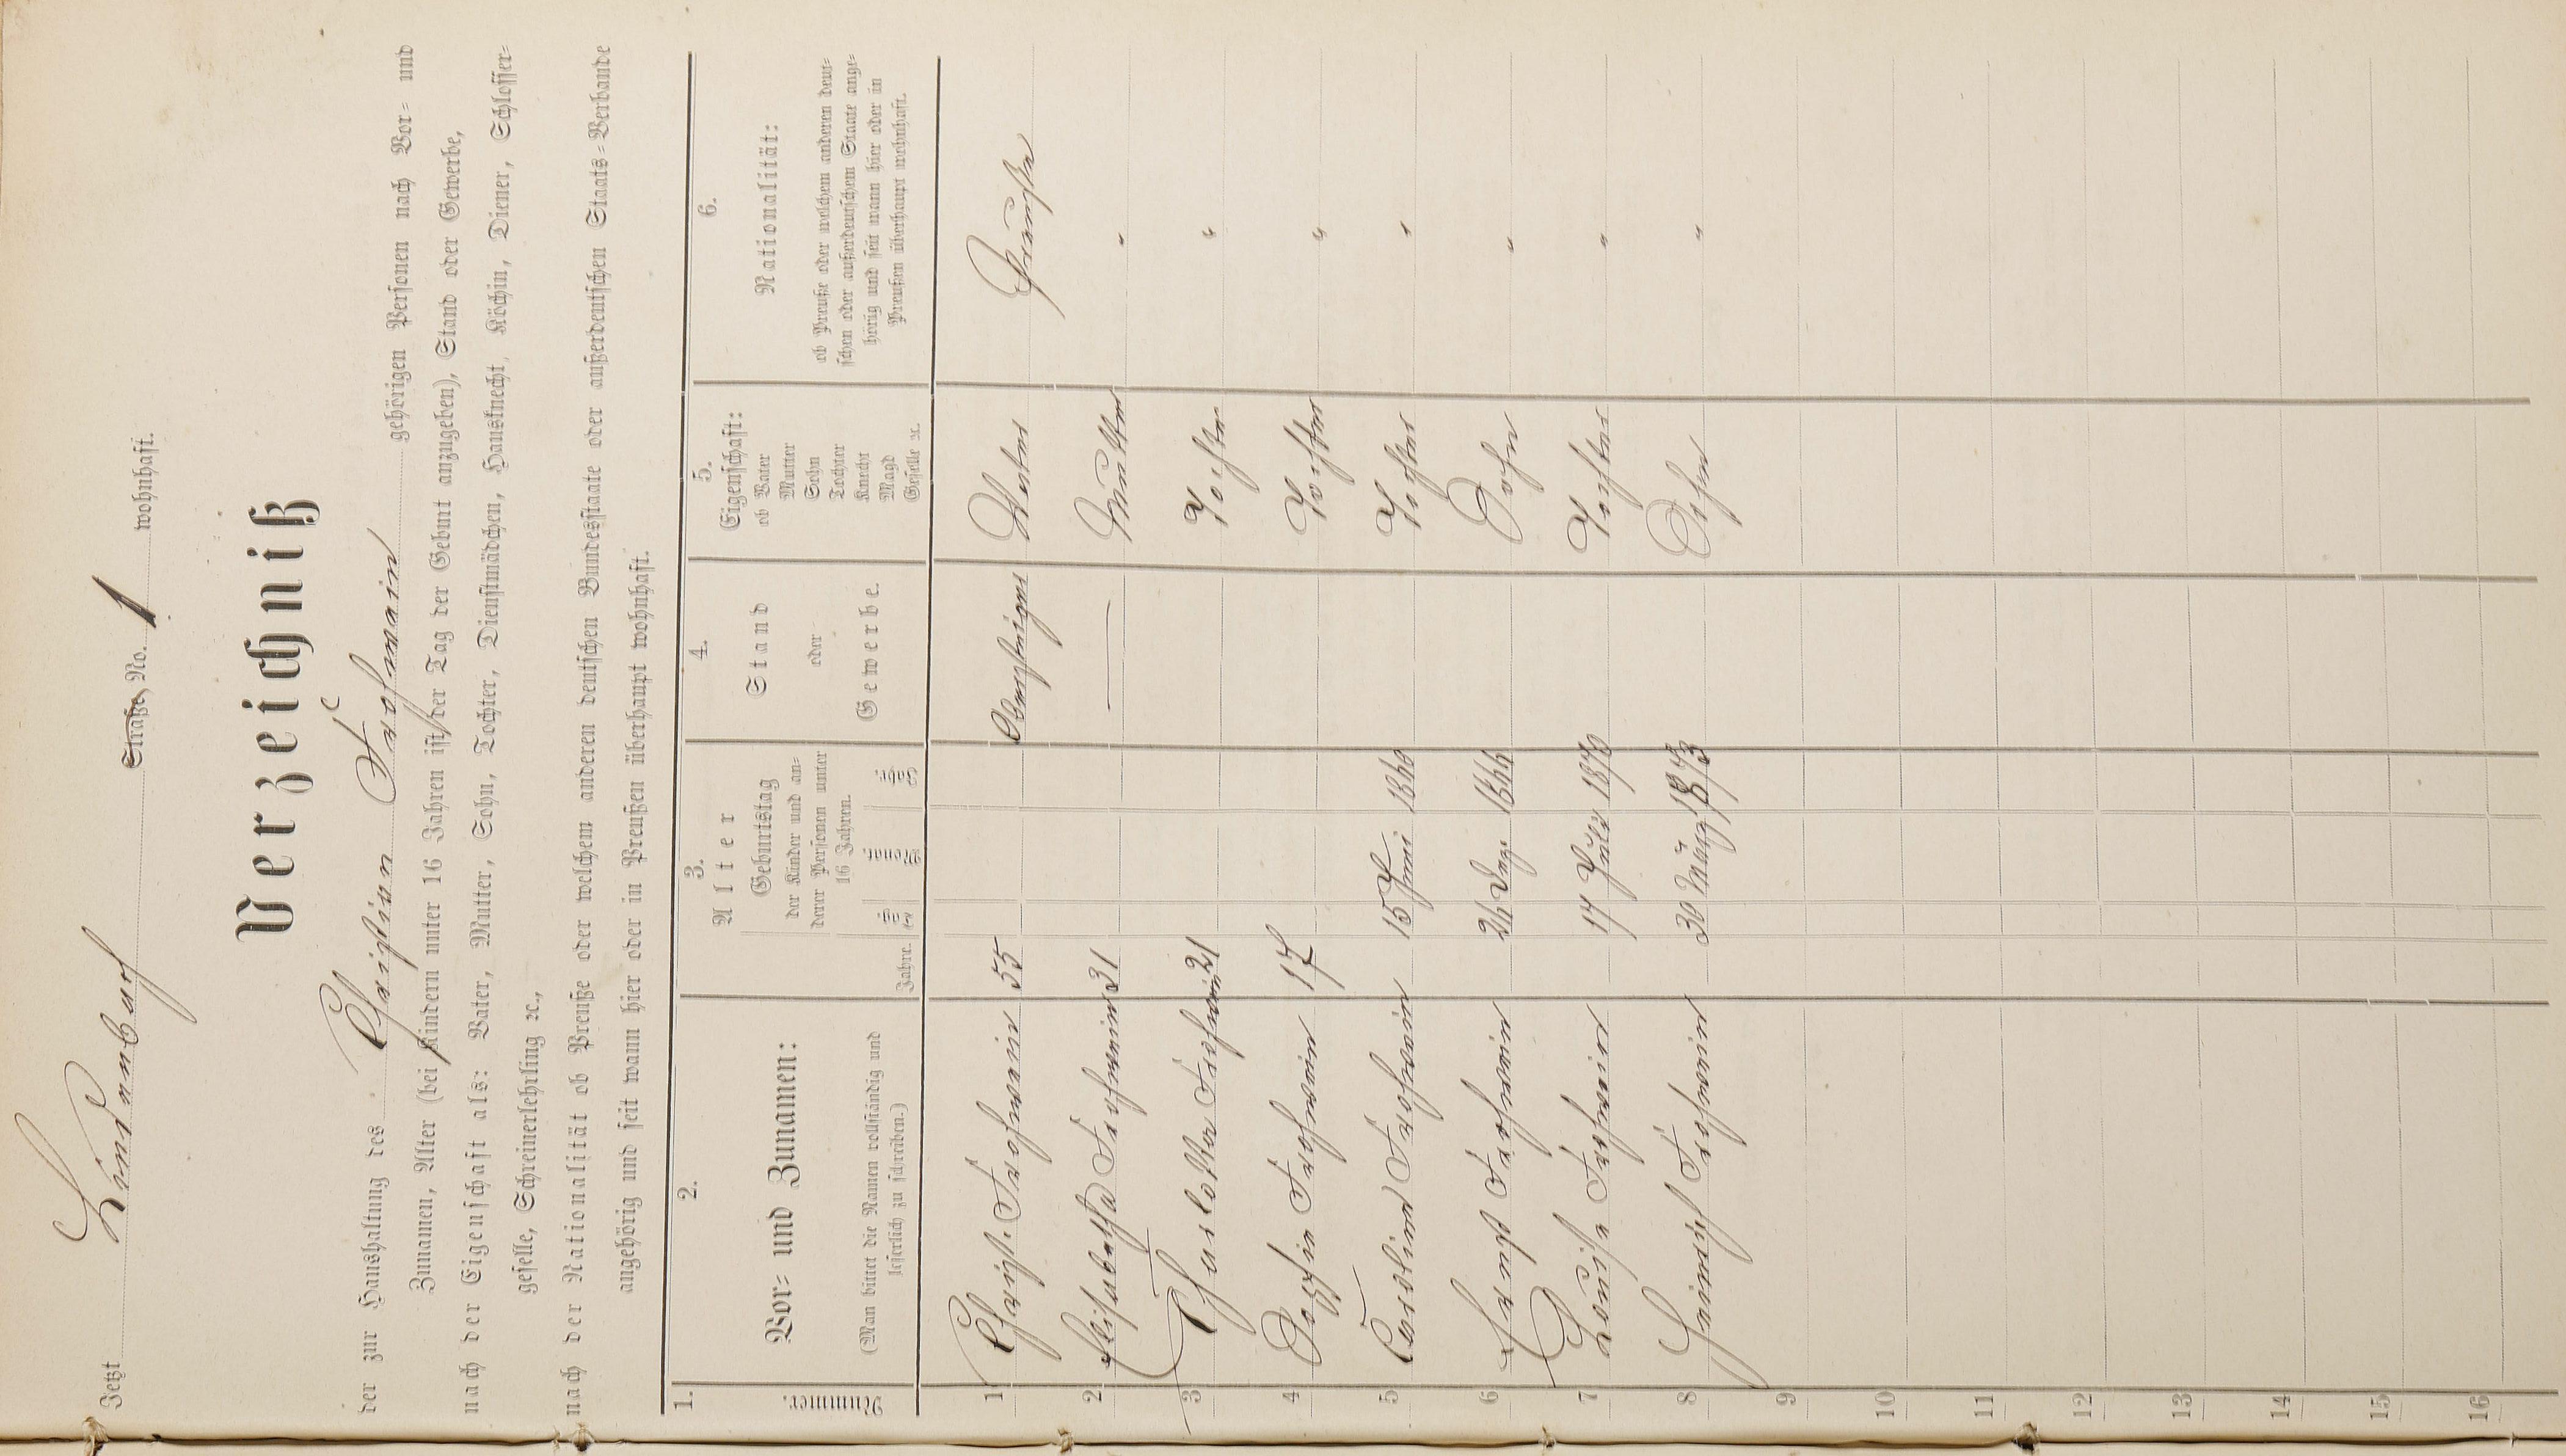 Jetzt Lindenbach Straße No. 1 wohnhaft.
Verzeichniß
der zur Haushaltung des Christian Frohwein gehörigen Personen nach Vor= und
Zunamen, Alter (bei Kindern unter 16 Jahren ist der Tag der Geburt anzugeben), Stand oder Gewerbe,
nach der Eigenschaft als: Vater, Mutter, Sohn, Tochter, Dienstmädchen, Hausknecht, Köchin, Diener, Schlosser=
geselle, Schreinerlehrling ꝛc.,
nach der Nationalität ob Preuße oder welchem anderen deutschen Bundesstaate oder außerdeutschen Staats=Verbande
angehörig und seit wann hier oder in Preußen überhaupt wohnhaft.
1. 2. 3. 4. 5. 6.
Nummer. Vor= und Zunamen: Alter Stand oder Gewerbe. Eigenschaft: Nationalität:
(Man bittet die Namen vollständig und
leserlich zu schreiben.)
Jahre. Geburtstag
der Kinder und an=
derer Personen unter
16 Jahren.
Tag Monat Jahr
ob Vater
Mutter
Sohn
Tochter
Knecht
Magd
Geselle ꝛc.
ob Preuße oder welchem anderen deut=
schen oder außerdeutschem Staate ange=
hörig und seit wann hier oder in
Preußen überhaupt wohnhaft.
1 Christ. Frohwein 55 Obersteiger Vater Preuße
2 Elisabetha Frohwein 31 — Mutter "
3 Charlotte Frohwein 21 Tochter "
4 Sophie Frohwein 17 Tochter "
5 Caroline Frohwein 15 Juni 1860 Tochter "
6 Ernst Frohwein 24 Dez. 1864 Sohn "
7 Louise Frohwein 17 July 1870 Tochter "
8 Heinrich Frohwein 30 März 1873 Sohn "
9
10
11
12
13
14
15
16